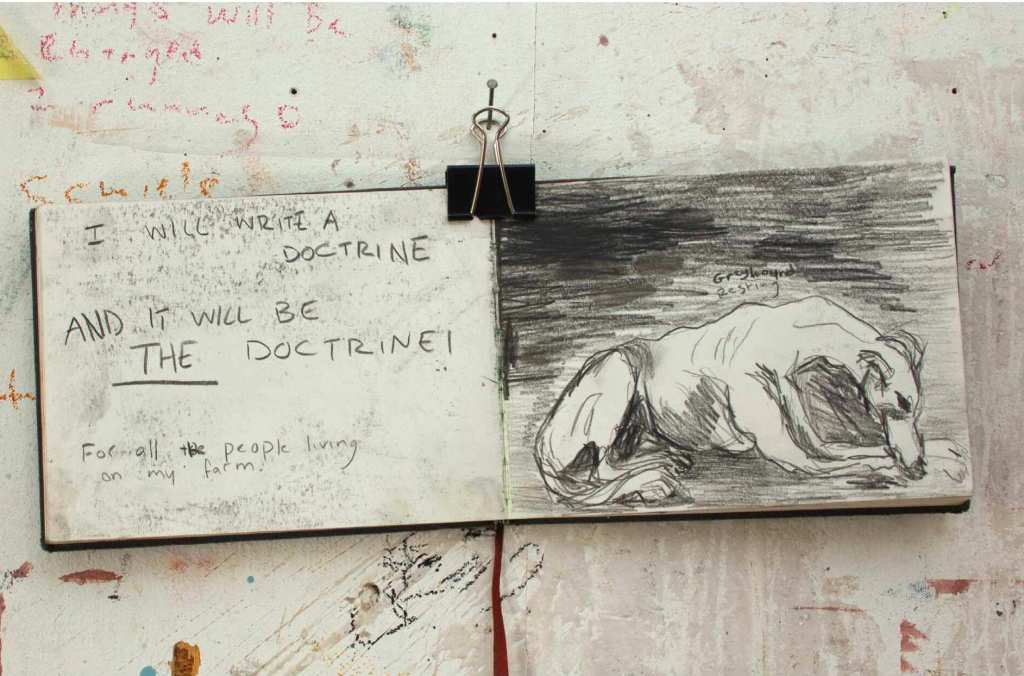 will Be
I WILL WRITE A
DOCTRINE
AND IT WILL BE
THE DOCTRINE!
For all the people living
on my farm.
Greyhound
Resting